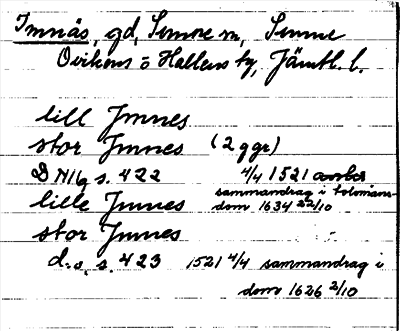 Imnäs, gd, Sunne sn, Sunne
Ovikens o Hallens tg, Jämtl. l.
lill Jmnes
stor Jmnes (2 ggr)
DN16 s. 422 4/4 1521
lille Jmnes sammandrag i tolvmanna-
dom 1634 22/10
stor Jmnes
d:o, s. 423 1521 4/4 sammandrag i
dom 1626 2/10